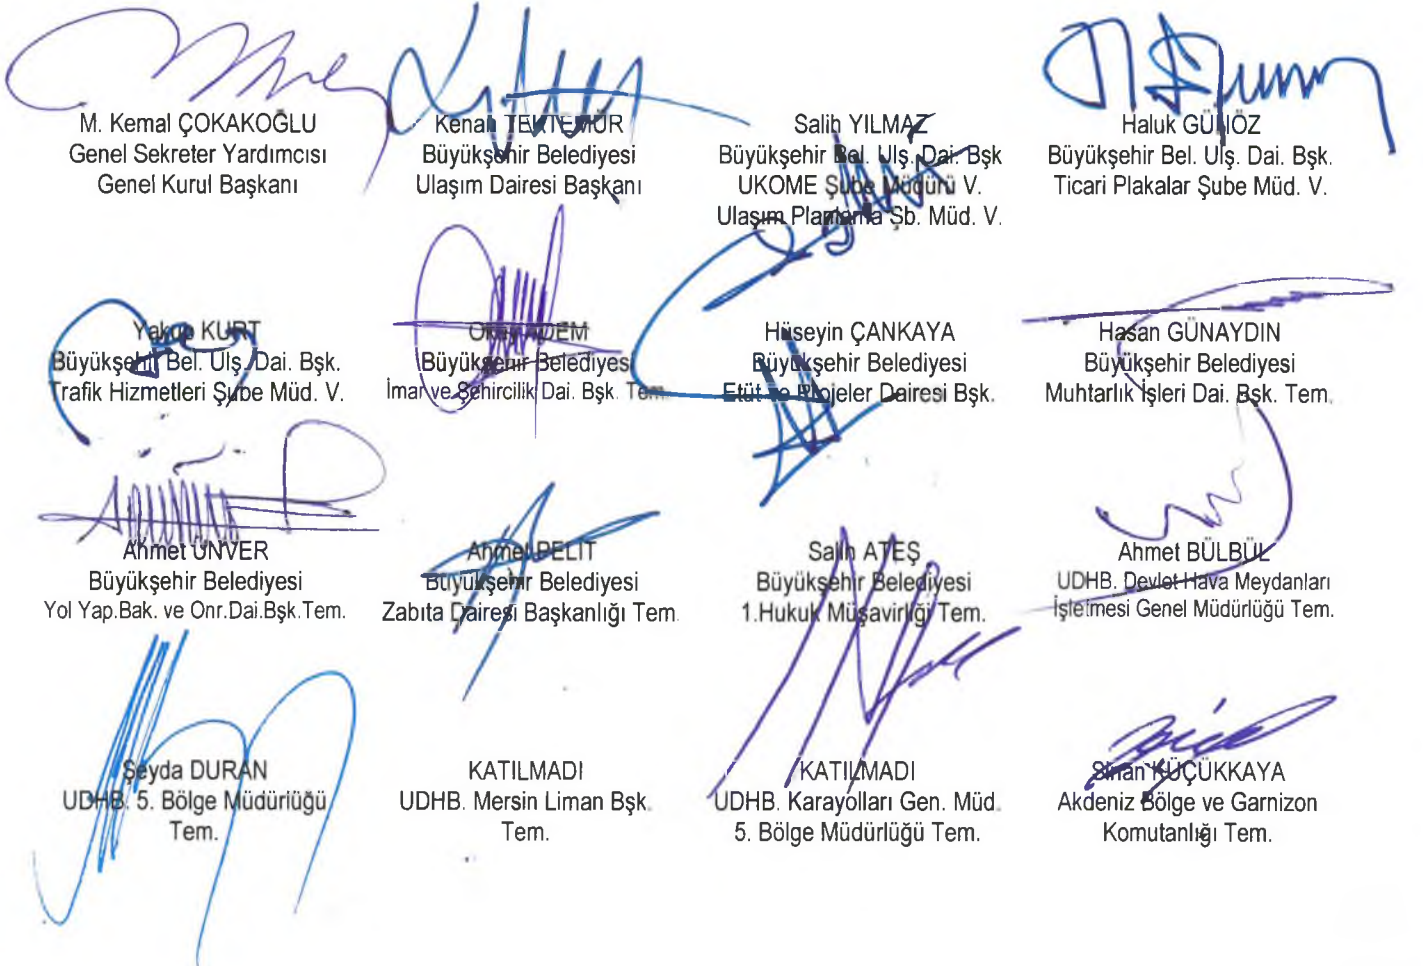 M. Kemal ÇOKAKOĞLU
Genel Sekreter Yardımcısı
Genel Kurul Başkanı
Kenan TEKTEMUR
Büyükşehir Belediyesi
Ulaşım Dairesi Başkanı
Salih YILMAZ
Büyükşehir Bel. Ulş. Dai. Bşk
UKOME Şube Müdürü V.
Ulaşım Planlama Şb. Müd. V.
Haluk
Büyükşehir Bel. Ulş. Dai. Bşk.
Ticari Plakalar Şube Müd. V.
Yakup KURT
Büyükşehir Bel. Ulş. Dai. Bşk.
Trafik Hizmetleri Şube Müd. V.
Büyükşehir Belediyesi
İmar ve Şehircilik Dai. Bşk. Tem.
Hüseyin ÇANKAYA
Büyükşehir Belediyesi
Etüt ve Projeler Dairesi Bşk.
Hasan GÜNAYDIN
Büyükşehir Belediyesi
Muhtarlık İşleri Dai. Bşk. Tem.
Ahmet ÜNVER
Büyükşehir Belediyesi
Yol Yap.Bak. ve Onr.Dai.Bşk.Tem.
Ahmet PELİT
Büyükşehir Belediyesi
Zabıta Dairesi Başkanlığı Tem.
Salih ATEŞ
Büyükşehir Belediyesi
1.Hukuk Müşavirliği Tem.
Ahmet BÜLBÜL
UDHB. Devlet Hava Meydanları
İşletmesi Genel Müdürlüğü Tem.
Şeyda DURAN
UDHB. 5. Bölge Müdürlüğü
Tem.
KATILMADI
UDHB. Mersin Liman Bşk.
Tem.
KATILMADI
UDHB. Karayolları Gen. Müd.
5. Bölge Müdürlüğü Tem.
Sinan KÜÇÜKKAYA
Akdeniz Bölge ve Garnizon
Komutanlığı Tem.